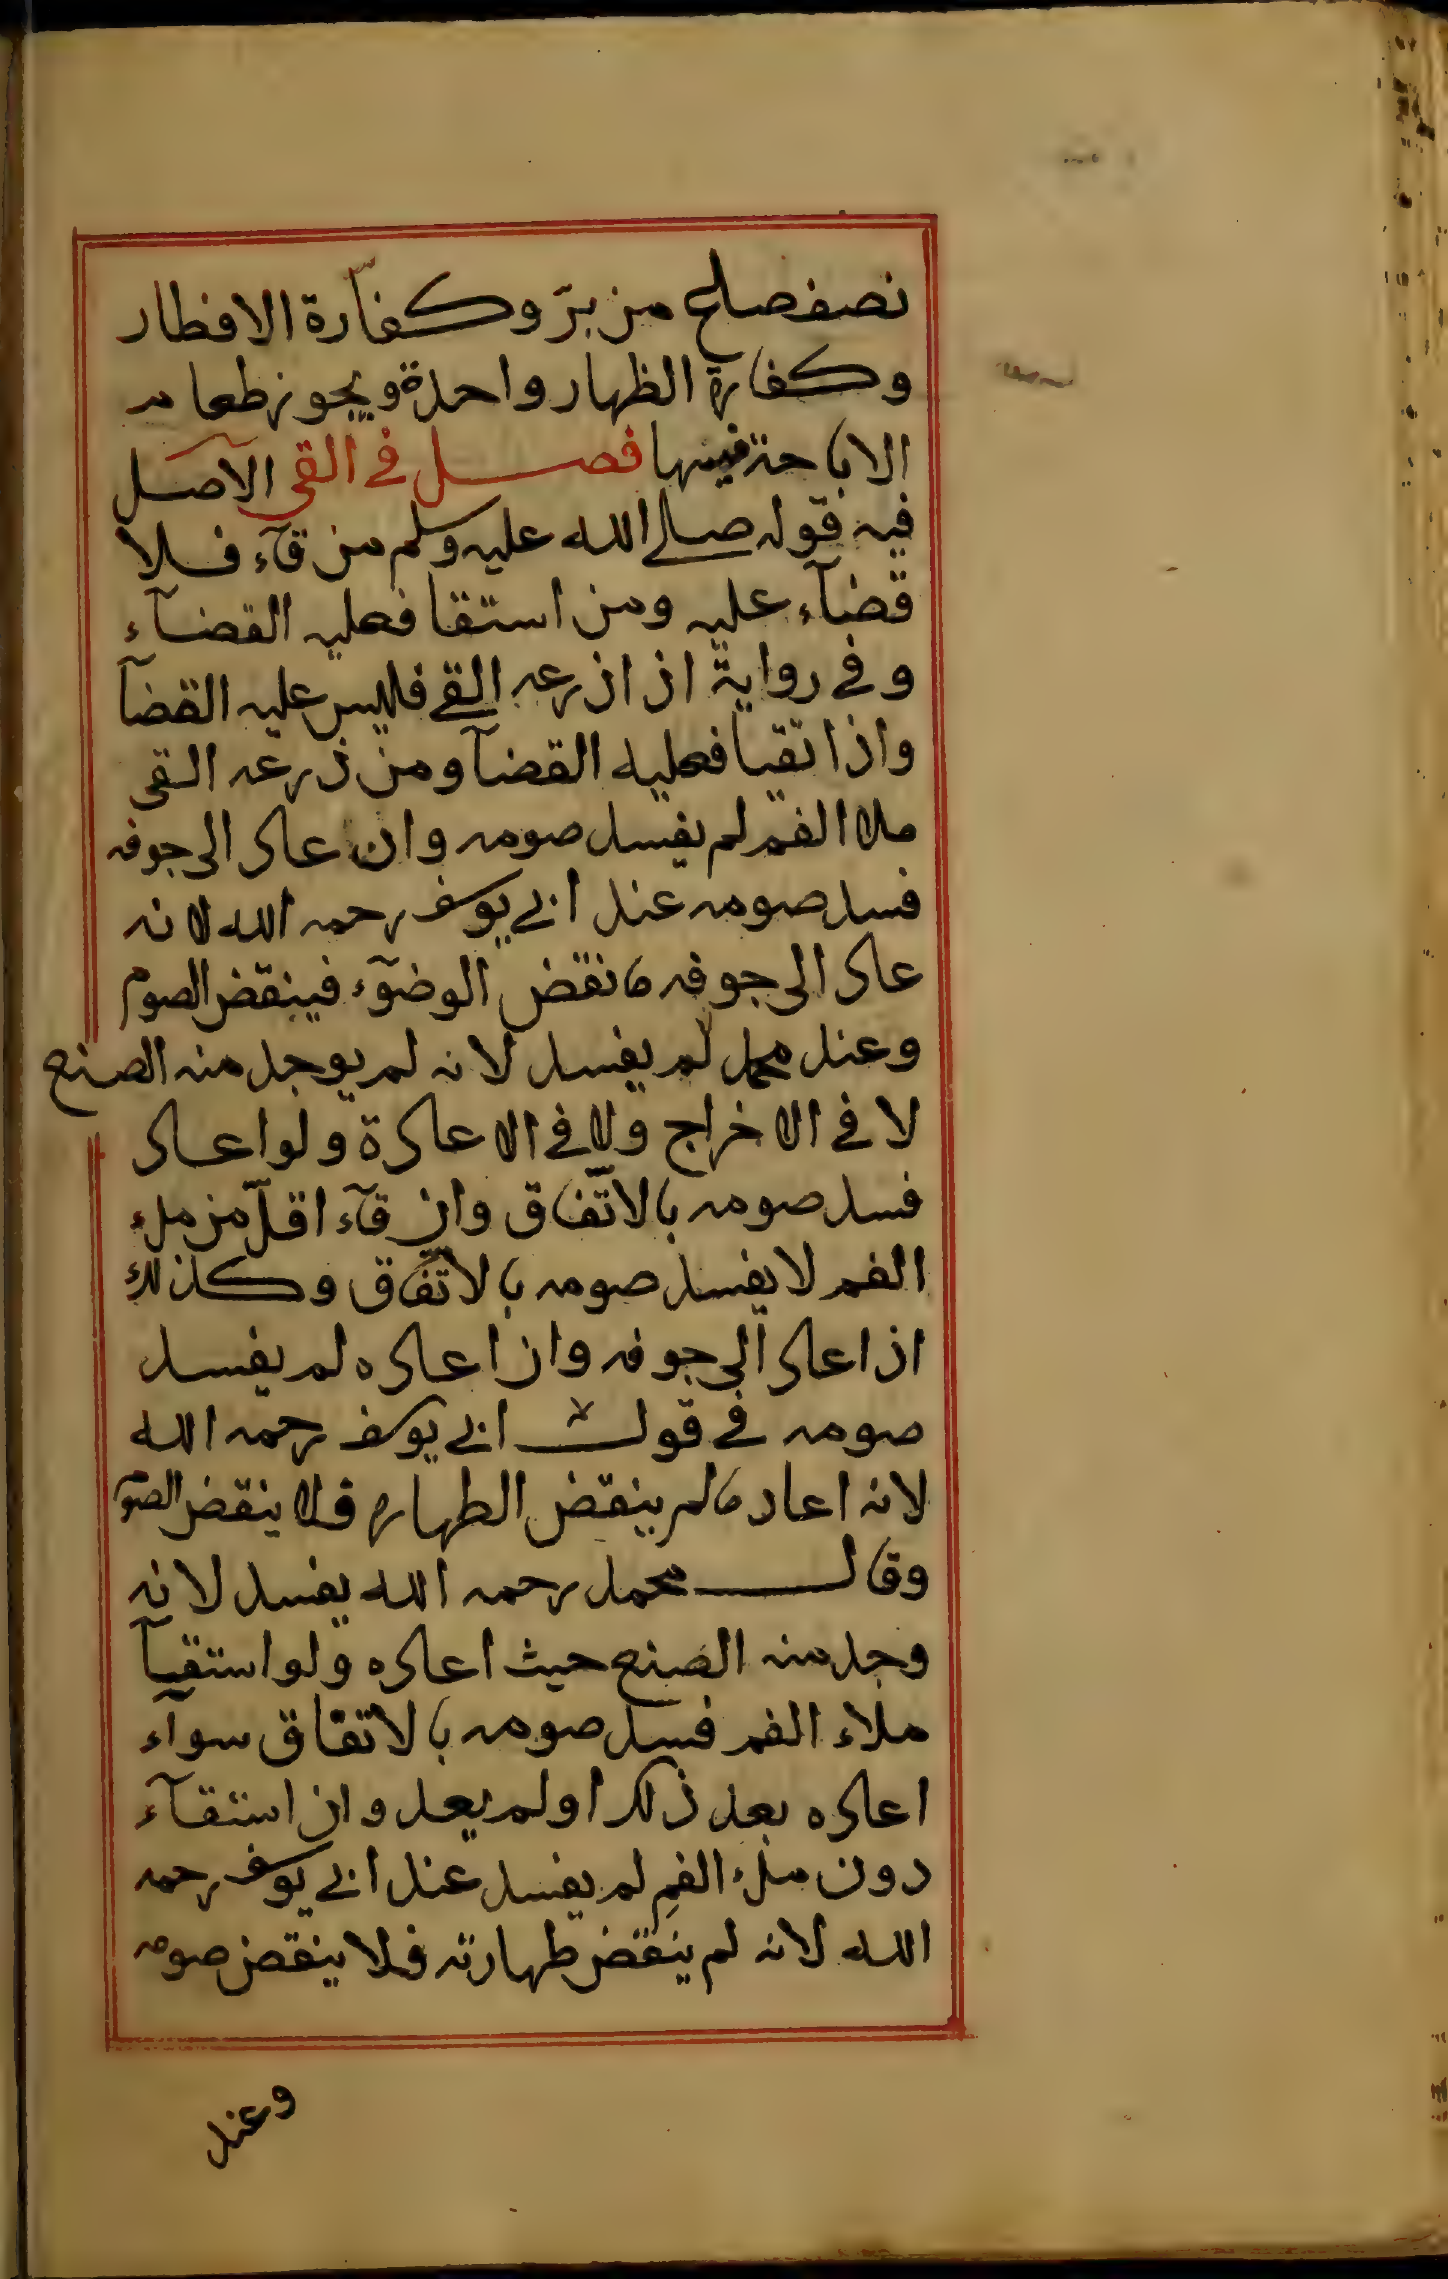 نصف صاع من برّ وكفّارة الافطار
وكفارة الظهار واحدة ويجوز طعام
الاباحة فيها فصل في القى الآصل
فيه قوله صلى الله عليه وسلم من قآء فلا
قضآء عليه ومن استقا فعليه القضآء
وفي رواية اذا ذرعه القي فليس عليه القضآ
واذا تقيا فعليه القضآ ومن ذرعه القى
ملا الفم لم يفسد صومه وان عاد الى جوفه
فسد صومه عند ابي يوسف رحمه الله لانه
عاد الى جوفه ما نقض الوضوء فينقض الصوم
وعند محمد لم يفسد لانه لم يوجد منه الصنع
لا في الاخراج ولا في الاعادة ولو اعاد
فسد صومه بالاتّفاق وان قآء اقلّ من ملء
الفم لا يفسد صومه بالاتّفاق وكذلك
اذا عاد الى جوفه وان اعاده لم يفسد
صومه في قول ابي يوسف رحمه الله
لانه اعاد ما لم ينقض الطهاره فلا ينقض الصوم
وقال محمد رحمه الله يفسد لانه
وجد منه الصنع حيث اعاده ولو استقيآ
ملاء الفم فسد صومه بالاتفاق سوآء
اعاده بعد ذلك او لم يعد وان استقآء
دون ملء الفم لم يفسد عند ابي يوسف رحمه
الله لانه لم ينقض طهارته فلا ينقض صومه
وعند